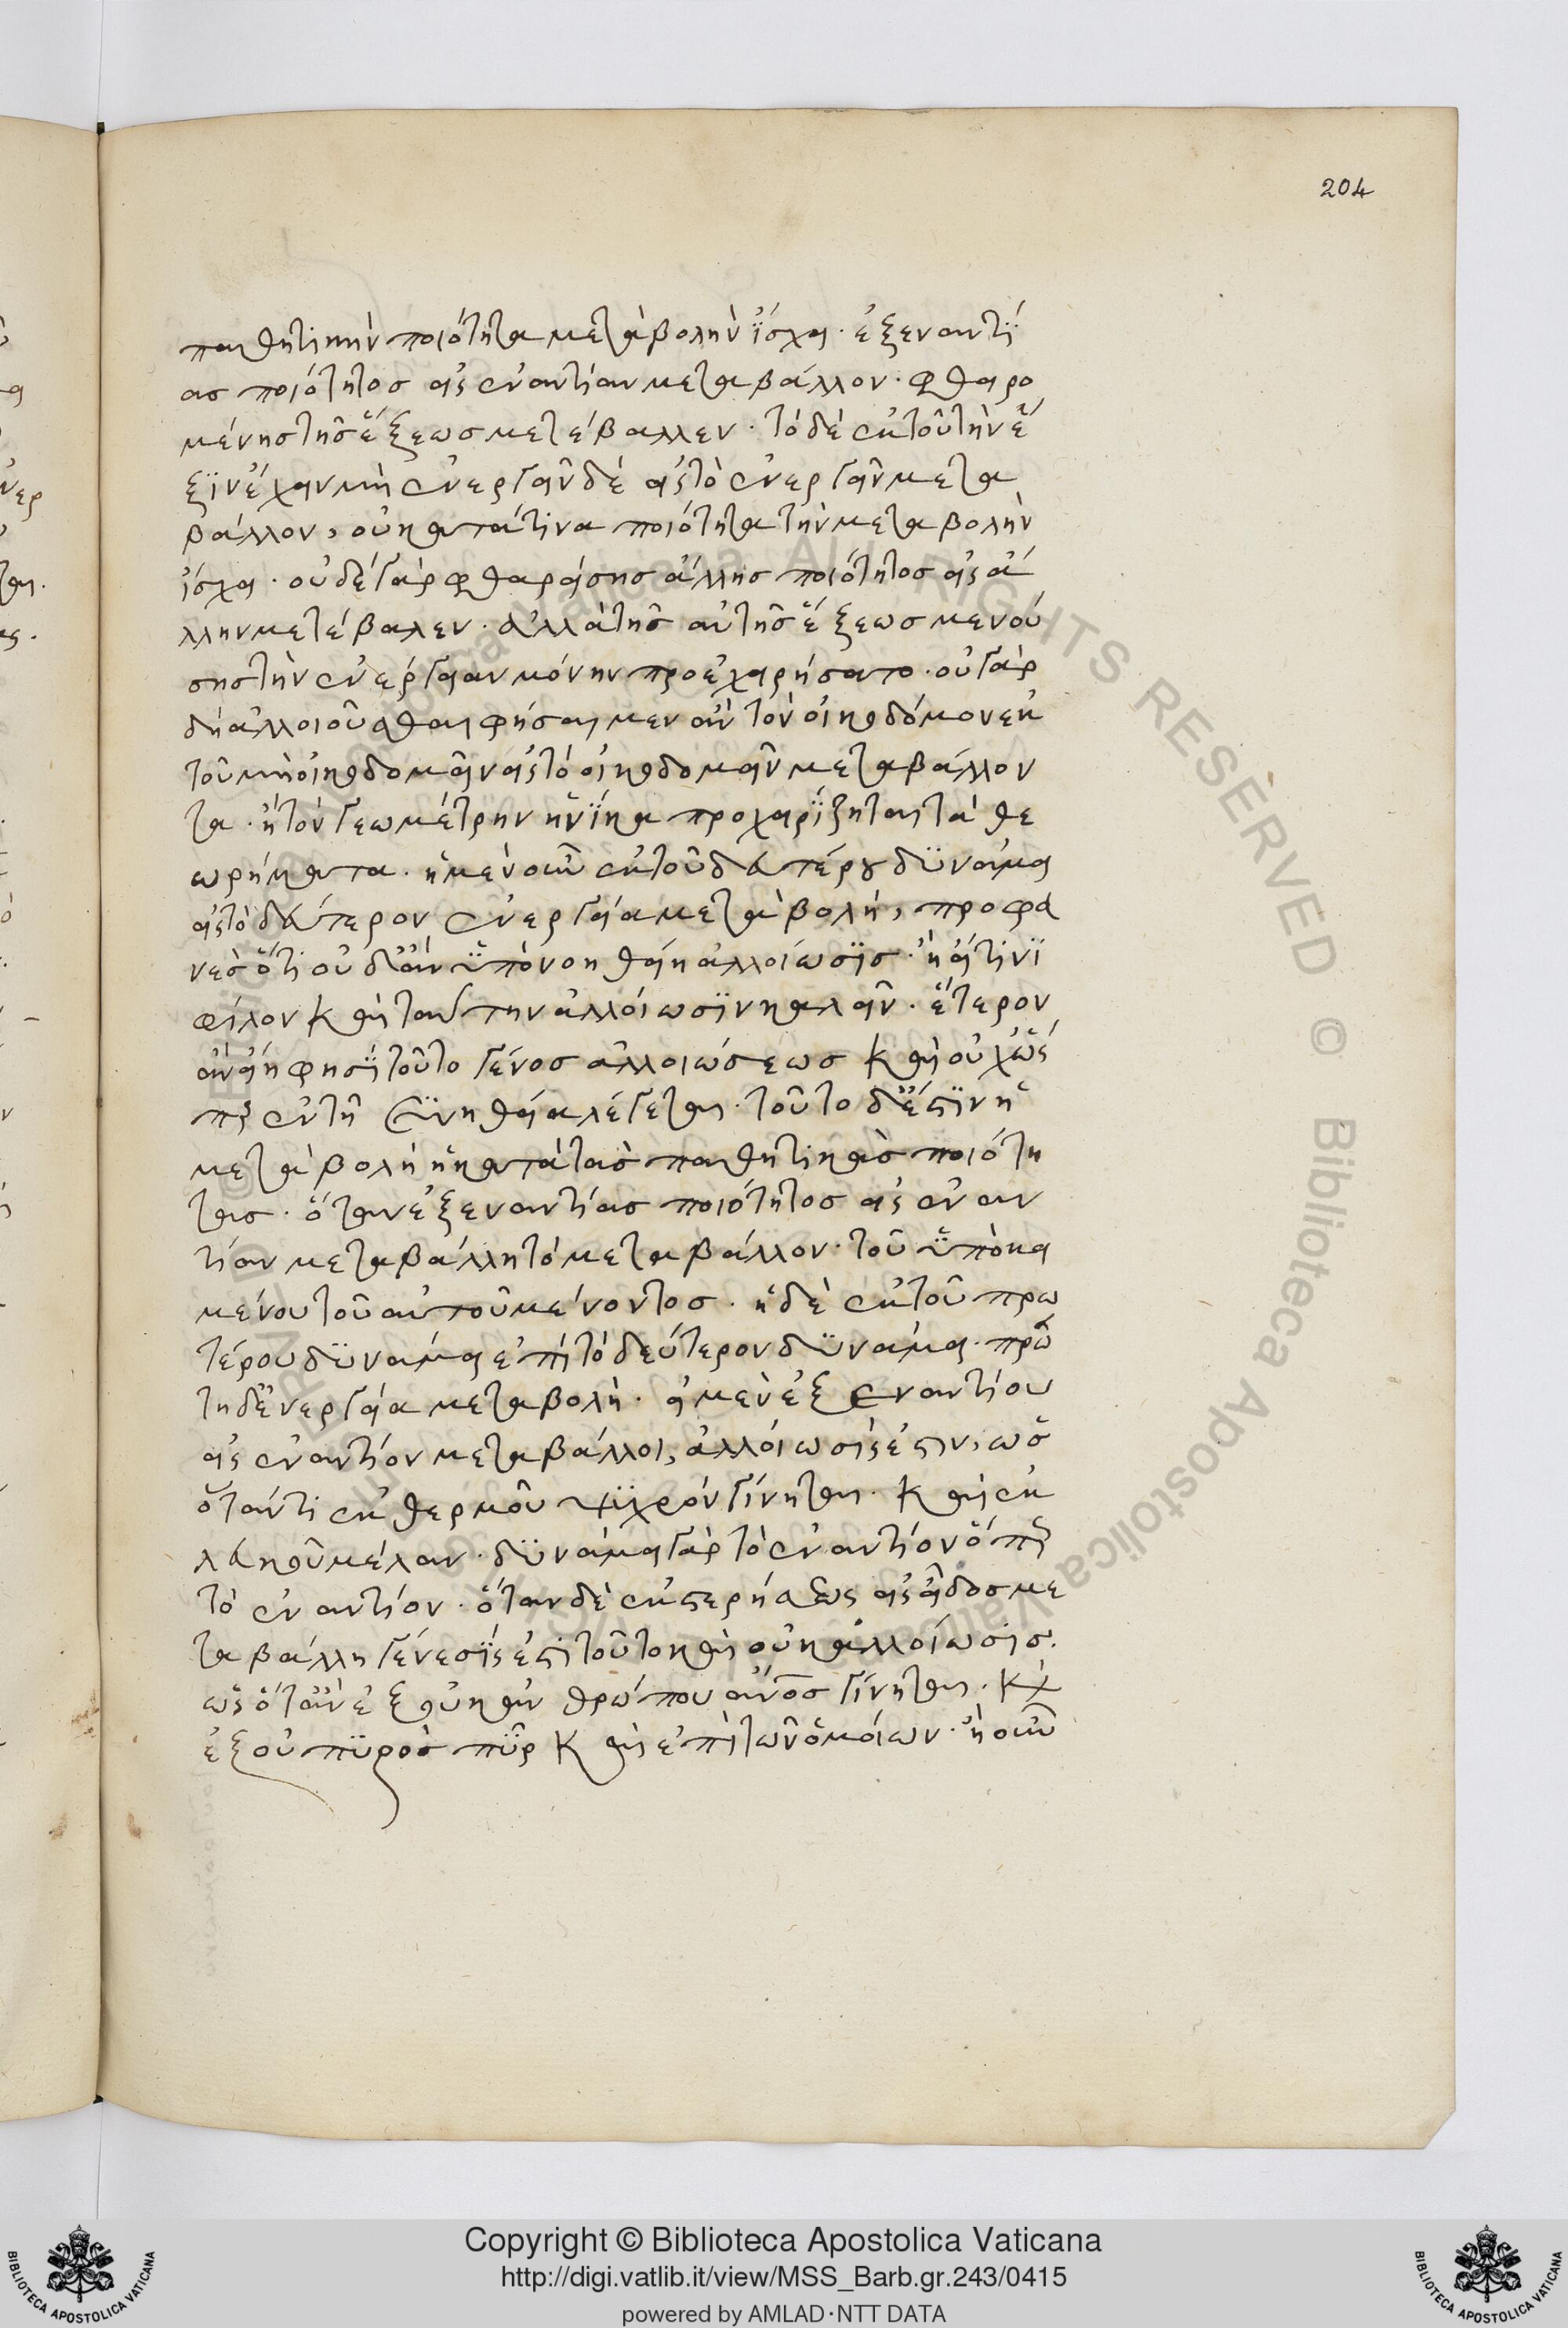 204
παθητικὴν ποιότητα μεταβολὴν ἴσχει· ἐξ ἐναντί
ας ποιότητος εἰς ἐναντίαν μεταβάλλον· φθειρο
μένης τῆς ἕξεως μετέβαλλεν· τὸ δὲ ἐκ τοῦ τὴν ἕ
ξιν ἔχειν μὴ ἐνεργεῖν δὲ εἰς τὸ ἐνεργεῖν μετα
βάλλον, οὐ κατά τινα ποιότητα τὴν μεταβολὴν
ἴσχει· οὐδὲ γὰρ φθαρείσης ἄλλης ποιότητος εἰς ἄ
λλην μετέβαλεν· ἀλλὰ τῆς αὐτῆς ἕξεως μενού
σης τὴν ἐνέργειαν μόνην προεχειρήσατο· οὐ γὰρ
δὴ ἀλλοιοῦσθαι φήσαιμεν ἂν τὸν οἰκοδόμον ἐκ
τοῦ μὴ οἰκοδομεῖν εἰς τὸ οἰκοδομεῖν μεταβάλλον
τα· ἢ τὸν γεωμέτρην ἡνίκα προχειρίζηται τὰ θε
ωρήματα· ἡ μὲν οὖν ἐκ τοῦ δευτέρου δυνάμει
εἰς τὸ δεύτερον ἐνεργείᾳ μεταβολὴ, προφα
νὲς ὅτι οὐδ' ἂν ὑπονοηθείη ἀλλοίωσις· ἢ εἴ τινι
φίλον καὶ ταύτην ἀλλοίωσιν καλεῖν· ἕτερον
ἂν εἴη φησὶ τοῦτο γένος ἀλλοιώσεως καὶ οὐχ ὥς
περ ἐν τῇ συνηθείᾳ λέγεται· τοῦτο δ' ἔστιν ἡ
μεταβολὴ ἡ κατὰ τὰς παθητικὰς ποιότη
τας· ὅταν ἐξ ἐναντίας ποιότητος εἰς ἐναν
τίαν μεταβάλλῃ τὸ μεταβάλλον· τοῦ ὑποκει
μένου τοῦ αὐτοῦ μένοντος· ἡ δὲ ἐκ τοῦ πρω
τέρου δυνάμει ἐπὶ τὸ δεύτερον δυνάμει· πρώ
τη δ' ἐνεργείᾳ μεταβολὴ· εἰ μὲν ἐξ ἐναντίου
εἰς ἐναντίον μεταβάλλοι, ἀλλοίωσίς ἐστιν, ὡς
ὅταν τι ἐκ θερμοῦ ψυχρὸν γίνηται· καὶ ἐκ
λευκοῦ μέλαν· δυνάμει γὰρ τὸ ἐναντίον ὅπερ
τὸ ἐναντίον· ὅταν δὲ ἐκ στερήσεως εἰς εἶδος με
ταβάλλῃ γένεσίς ἐστι τοῦτο καὶ οὐκ ἀλλοίωσις.
ὡς ὅταν ἐξ οὐκ ἀνθρώπου ἄνος γίνηται· καὶ
ἐξ οὐ πυρὸς πῦρ καὶ ἐπὶ τῶν ὁμοίων· ἢ οὖν
Copyright © Biblioteca Apostolica Vaticana
http://digi.vatlib.it/view/MSS_Barb.gr.243/0415
powered by AMLAD·NTT DATA
BIBLIOTECA APOSTOLICA VATICANA
BIBLIOTECA APOSTOLICA VATICANA